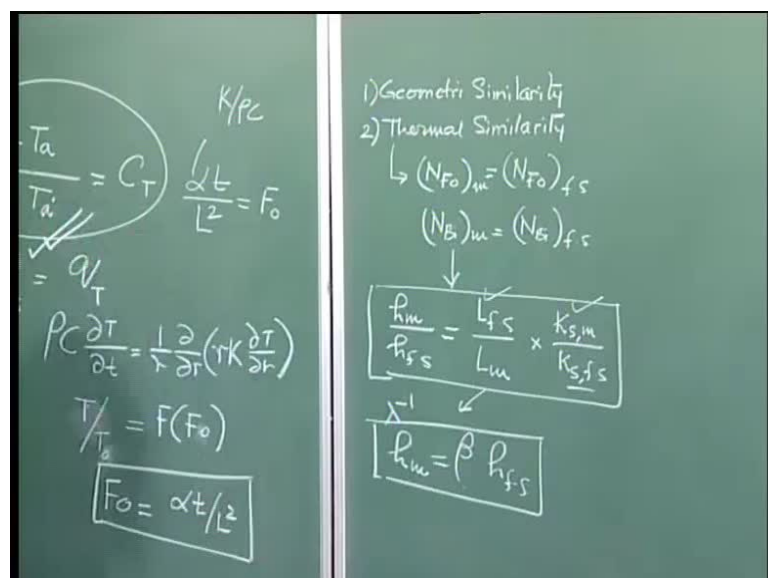 K/ρC
- Ta
Ta' = C_T
αt/L² = F₀
= q_T
ρC ∂T/∂t = 1/r ∂/∂r (rK ∂T/∂r)
T/T₀ = F(F₀)
F₀ = αt/L²
1) Geometri Similarity
2) Thermal Similarity
↳ (N_Fo)_m = (N_Fo)_fs
(N_Bi)_m = (N_Bi)_fs
h_m/h_fs = L_fs/L_m × K_s,m/K_s,fs
λ⁻¹
h_m = β h_f-s